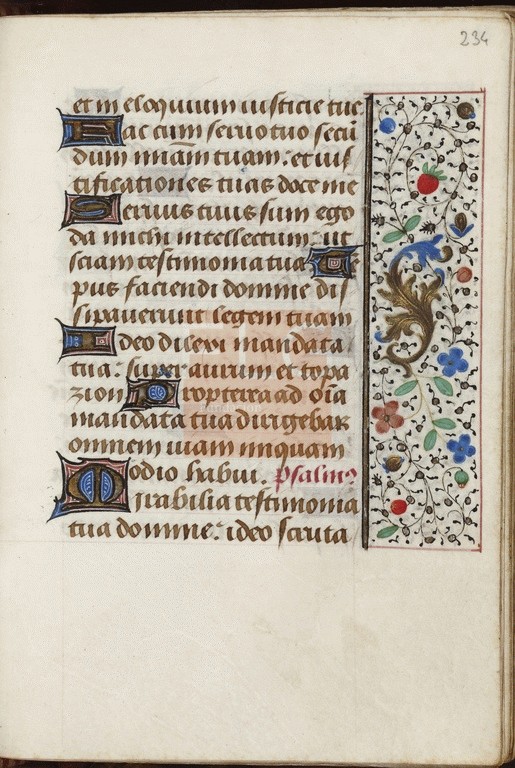 234
et in eloquium iusticie tue
Fac cum seruo tuo secū
dum miām tuam: et ius
tificationes tuas doce me
Seruus tuus sum ego
da michi intellectum: ut
sciam testimonia tua Tē
pus faciendi domine dis
sipauerunt legem tuam
Ideo dilexi mandata
tua: super aurum et topa
zion Propterea ad oīa
mandata tua dirigebar
omnem uiam iniquam
odio habui. psalmꝰ
Mirabilia testimonia
tua domine: ideo scruta